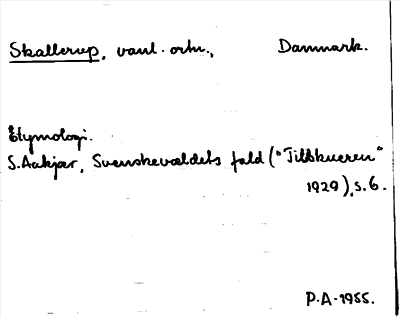 Skallerup, vanl. ortn., Danmark.
Etymologi.
S. Aakjær, Svenskevældets fald ("Tilskueren"
1929), s. 6.
P.A. 1955.